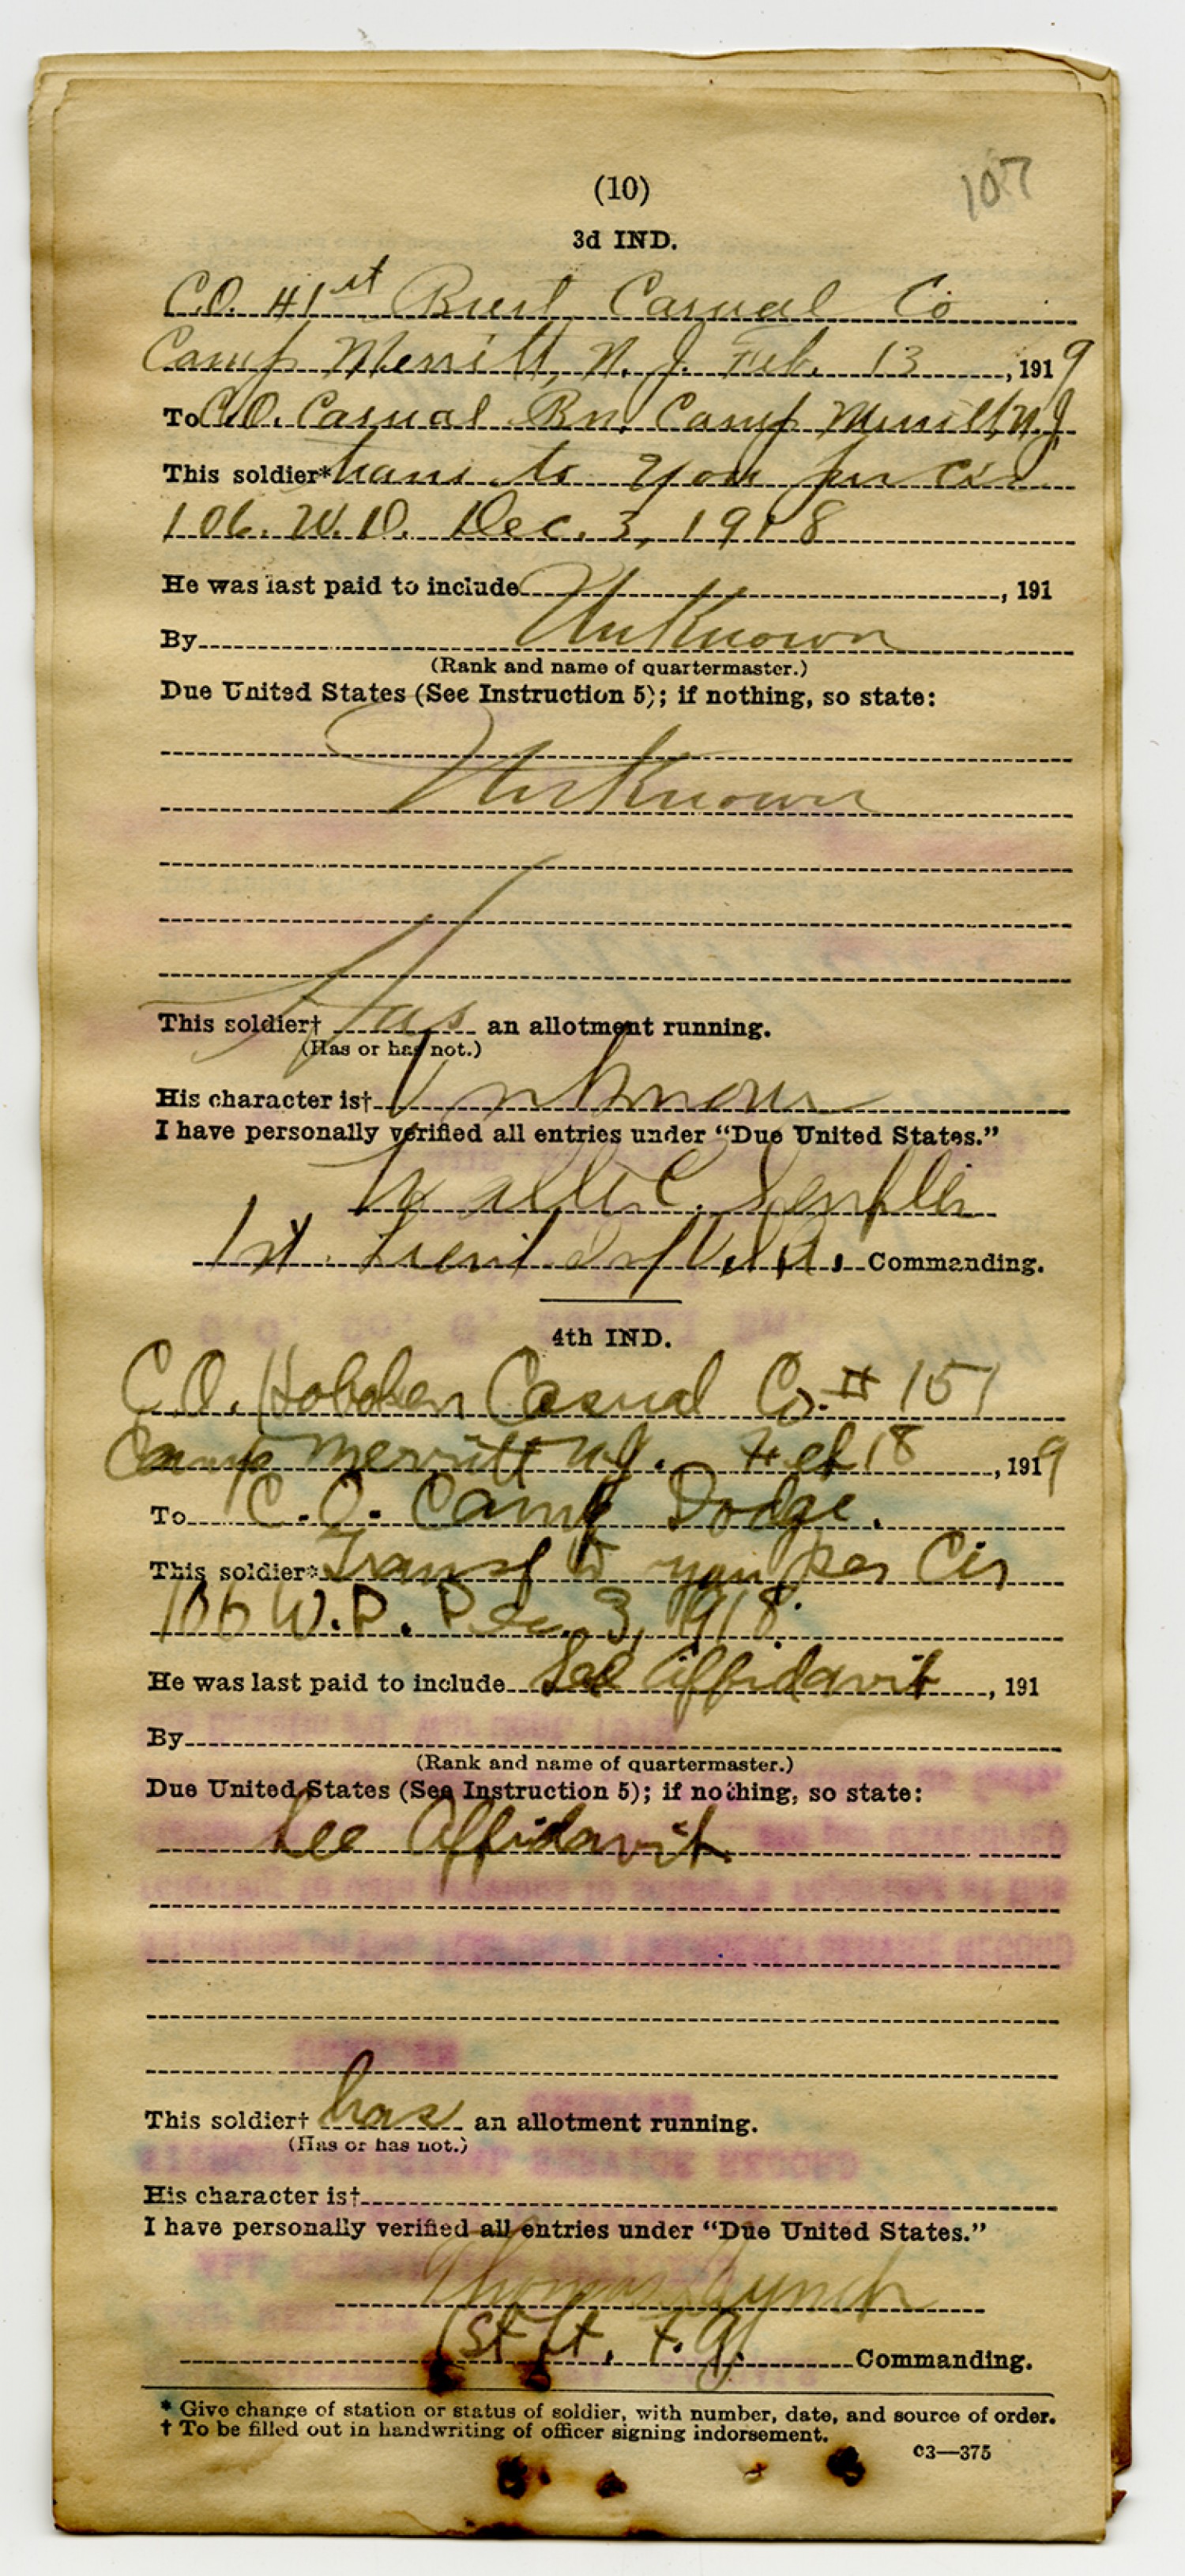 (10)
107
3d IND.
C.O. 41st Brest Casual Co
Camp Merritt, N. J. Feb. 13, 1919
To C.O. Casual Bn. Camp Merritt, N.J.
This soldier* trans to you per Cir
106. W.D. Dec. 3, 1918
He was last paid to include, 191
By Unknown
(Rank and name of quartermaster.)
Due United States (See Instruction 5); if nothing, so state:
Unknown
This soldier† has an allotment running.
(Has or has not.)
His character is† Unknown
I have personally verified all entries under “Due United States.”
C.
1st. Lieut. Inf U.S.A. Commanding.
4th IND.
C.O. Hoboken Casual Co. # 151
Camp Merritt N.J. Feb 18, 1919
To C.O. Camp Dodge.
This soldier* Transf to you per Cir
106 W.D. Dec. 3, 1918.
He was last paid to include See Affidavit, 191
By
(Rank and name of quartermaster.)
Due United States (See Instruction 5); if nothing, so state:
See Affidavit.
This soldier† has an allotment running.
(Has or has not.)
His character is†
I have personally verified all entries under “Due United States.”
Thomas Lynch
1st Lt. F.A. Commanding.
* Give change of station or status of soldier, with number, date, and source of order.
† To be filled out in handwriting of officer signing indorsement.
C3—375